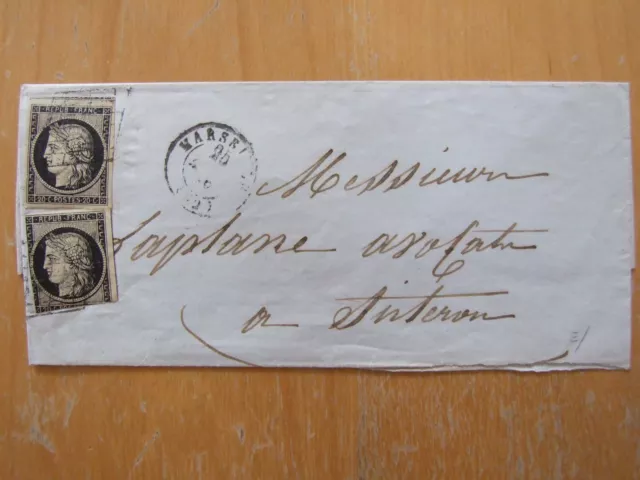 REPUB FRANC
20 C POSTES 20 C
REPUB FRANC
MARSEI
25
Messieurs
Laplane avocat
a Sisteron